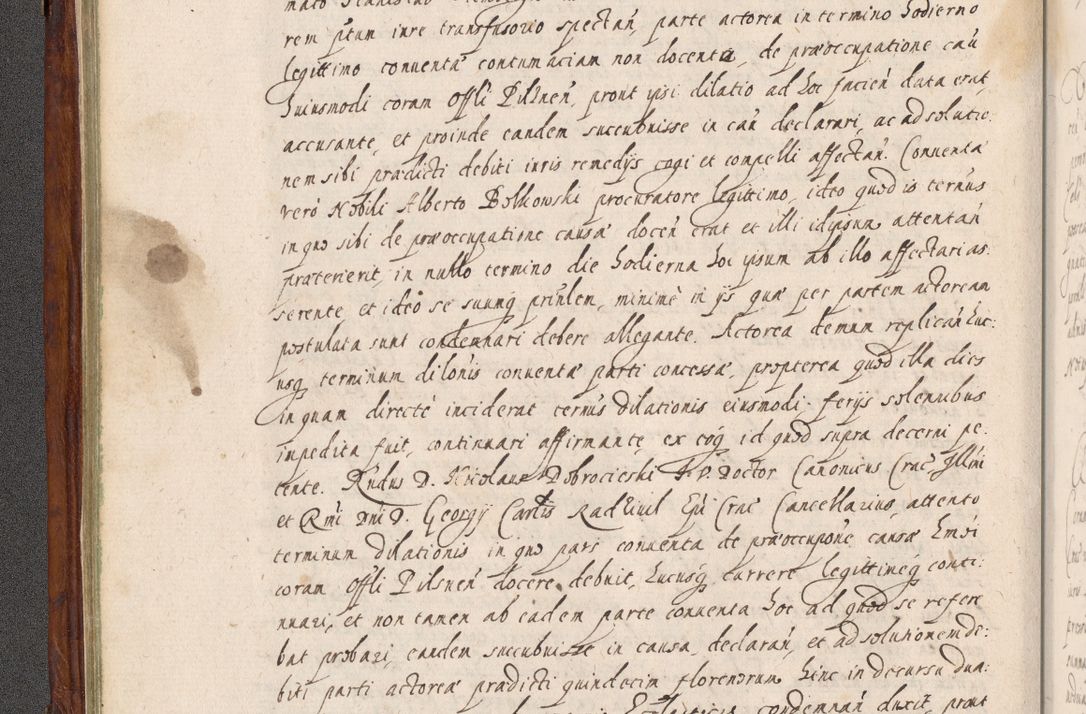 rem ptum iure transfusorio spectan, parte actorea in termino hodierno
legittimo conuenta contumaciam non docenta, de præoccupatione cau
huiusmodi coram Offli Pilsnen, prout ipsi dilatio ad hoc facien data erat,
accusante, et proinde eandem succubuisse in cau declarari, ac ad solutio:
nem sibi prædicti debiti iuris remedijs cogi et compelli affectan. Conuenta
verò Nobili Alberto Bolkowski procuratore legittimo, ideo quod is ternus
in quo sibi de præoccupatione causæ docen erat et illi idipsum attentan
præterierit, in nullo termino die hodierna hoc ipsum ab illo affectari as:
serente, et ideò se suumq prinlem, minimè in ijs quæ per partem actoream
postulata sunt condemnari debere allegante. Actorea demum replican huc:
usq terminum dilonis conuentæ parti concessæ, propterea quod illa dies
in quam directè inciderat ternus dilationis eiusmodi ferijs solennibus
impedita fuit, continuari affirmante, ex coq id quod supra decerni pe:
tente. Rndus D. Nicolaus Dobrocieski I. V. Doctor Canonicus Crac Illmi
et Rmi Dni D. Georgij Carlis Radziuil Epi Crac Cancellarius, attento
terminum dilationis in quo pars conuenta de præoccupone causæ hmoi
coram Offli Pilsnen docere debuit, hucusq currere legittimeq conti:
nuari, et non tamen ab eadem parte conuenta hoc ad quod se refere
bat probari, eandem succubuisse in causa, declaran, et ad solutionem de:
biti parti actoreæ prædicti quindecim florenorum hinc in decursu dua:
condemnan duxit, prout